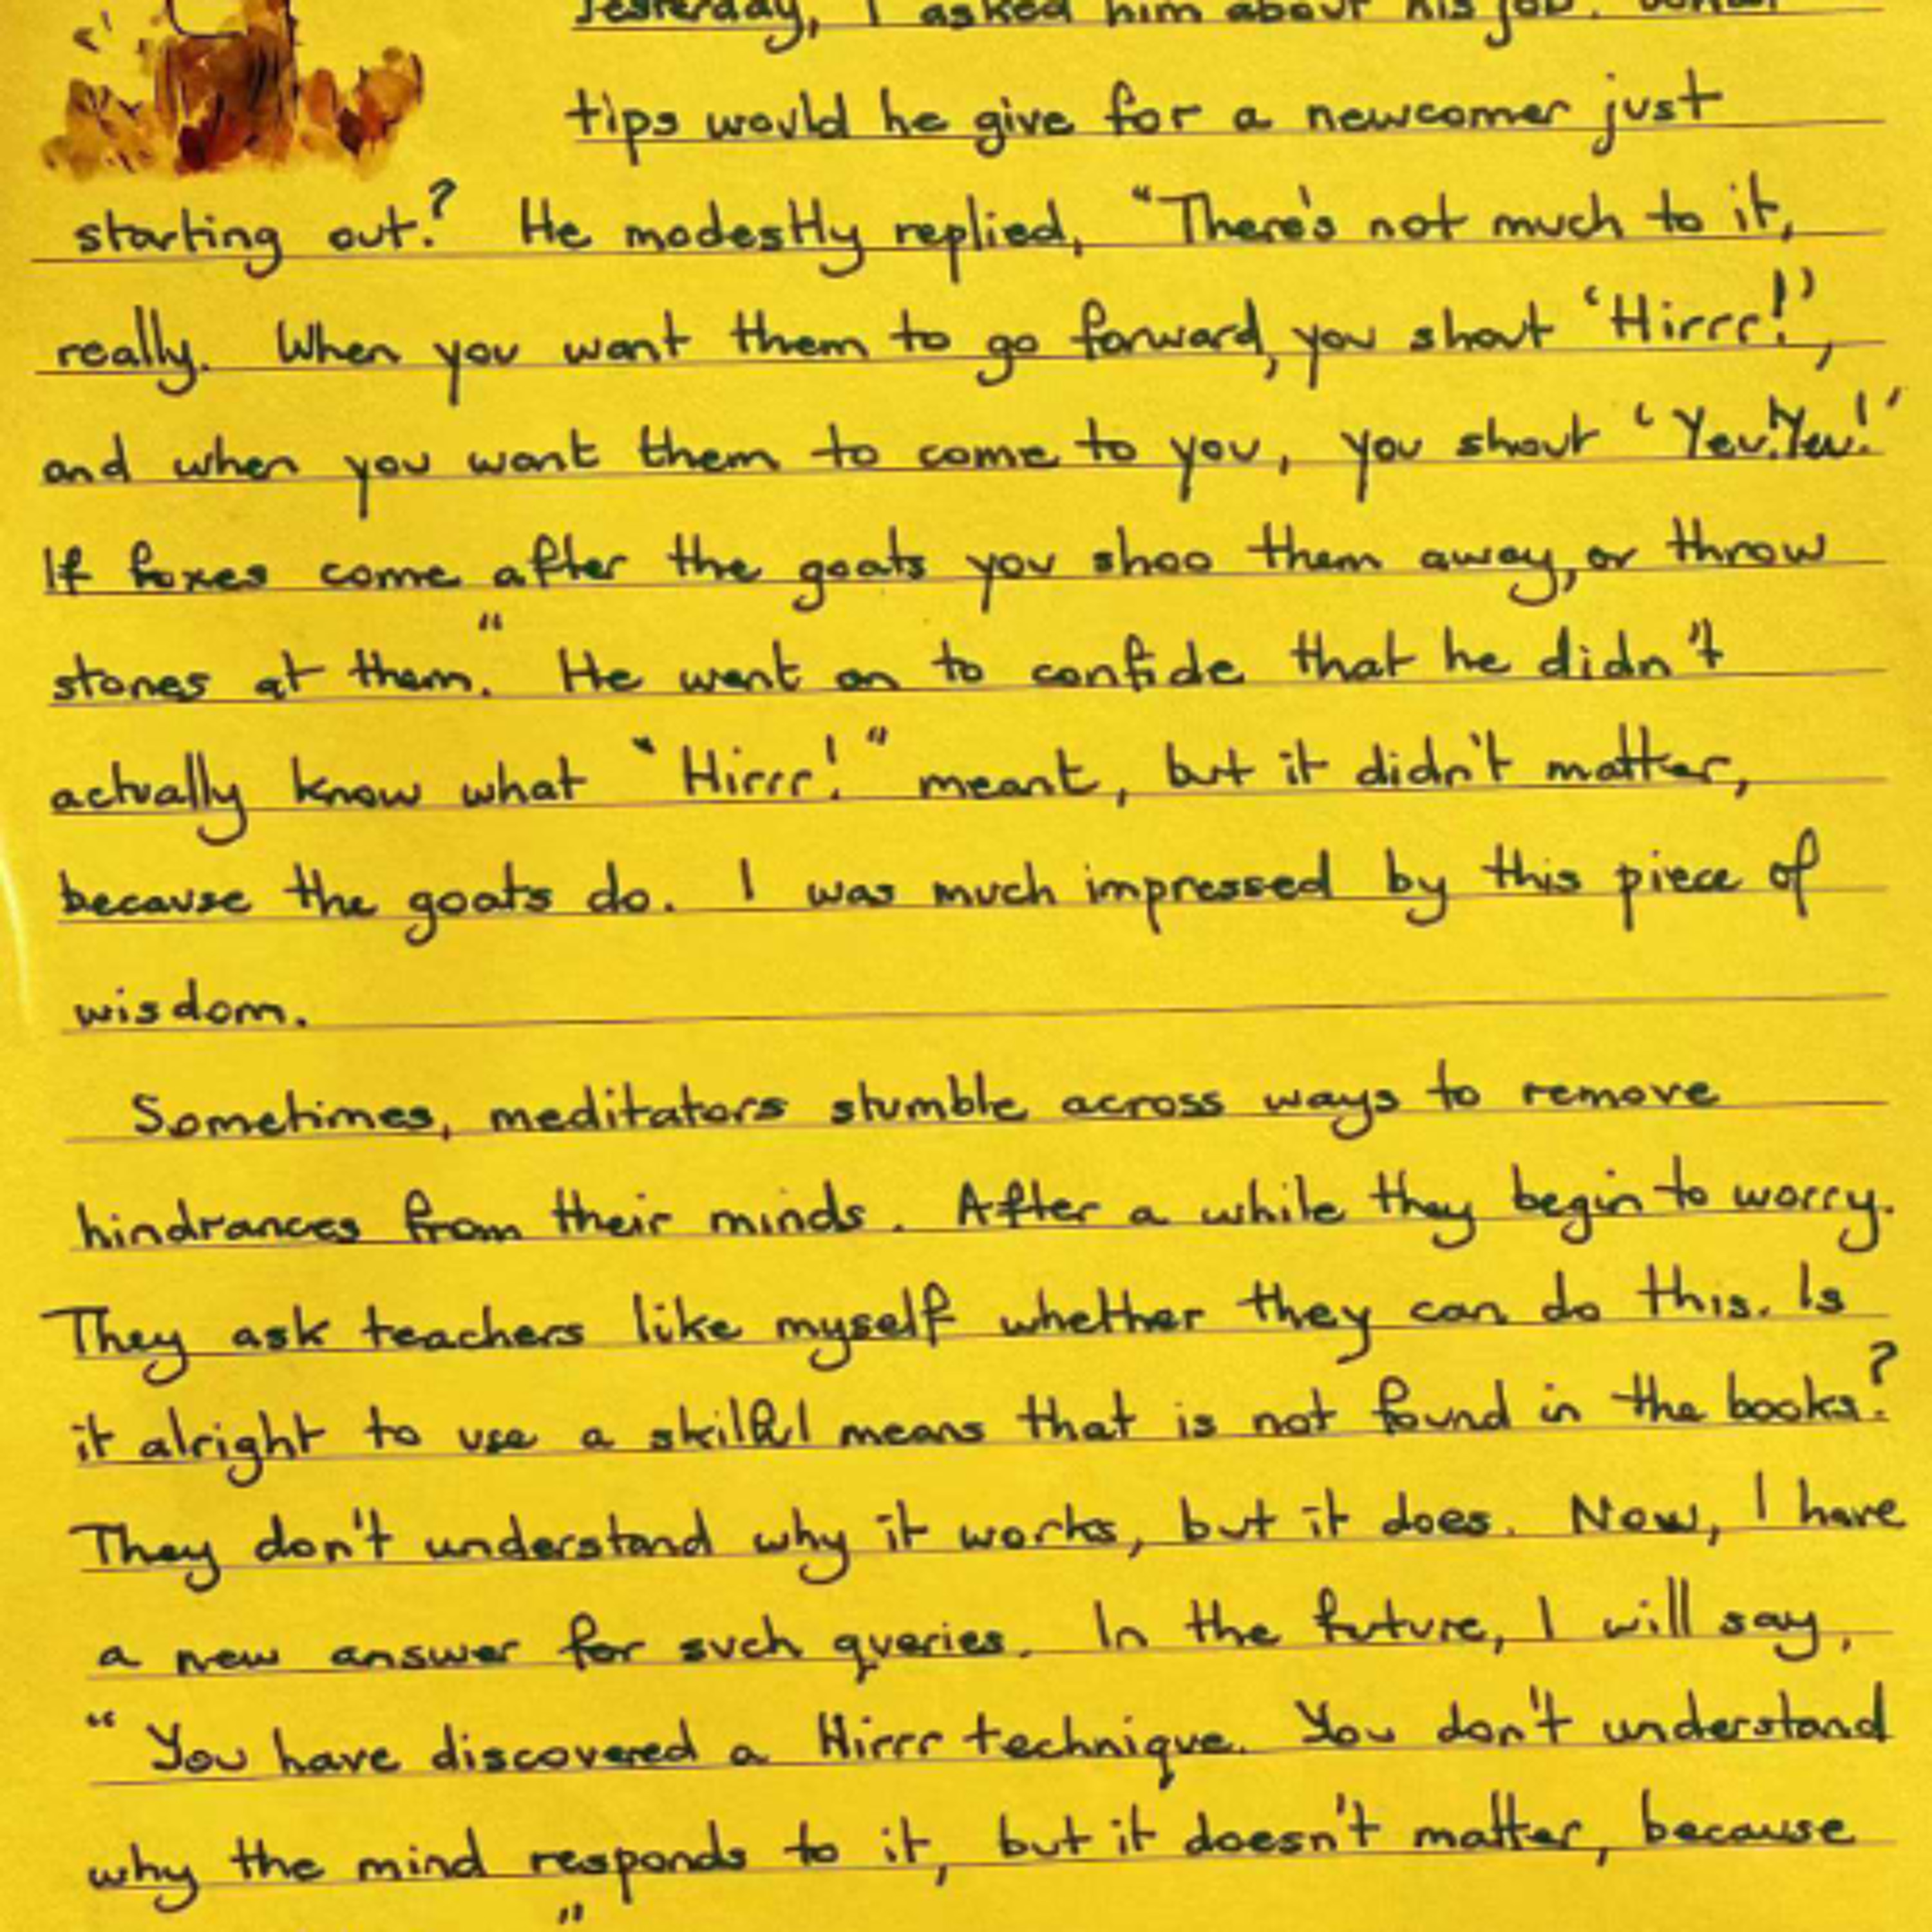 Yesterday, I asked him about his job. What
tips would he give for a newcomer just
starting out? He modestly replied, "There's not much to it,
really. When you want them to go forward, you shout 'Hirrr!',
and when you want them to come to you, you shout 'Yeu!Yeu!'
If foxes come after the goats you shoo them away, or throw
stones at them." He went on to confide that he didn't
actually know what "Hirrr!" meant, but it didn't matter,
because the goats do. I was much impressed by this piece of
wisdom.
Sometimes, meditators stumble across ways to remove
hindrances from their minds. After a while they begin to worry.
They ask teachers like myself whether they can do this. Is
it alright to use a skilful means that is not found in the books?
They don't understand why it works, but it does. Now, I have
a new answer for such queries. In the future, I will say,
"You have discovered a Hirrr technique. You don't understand
why the mind responds to it, but it doesn't matter, because
"